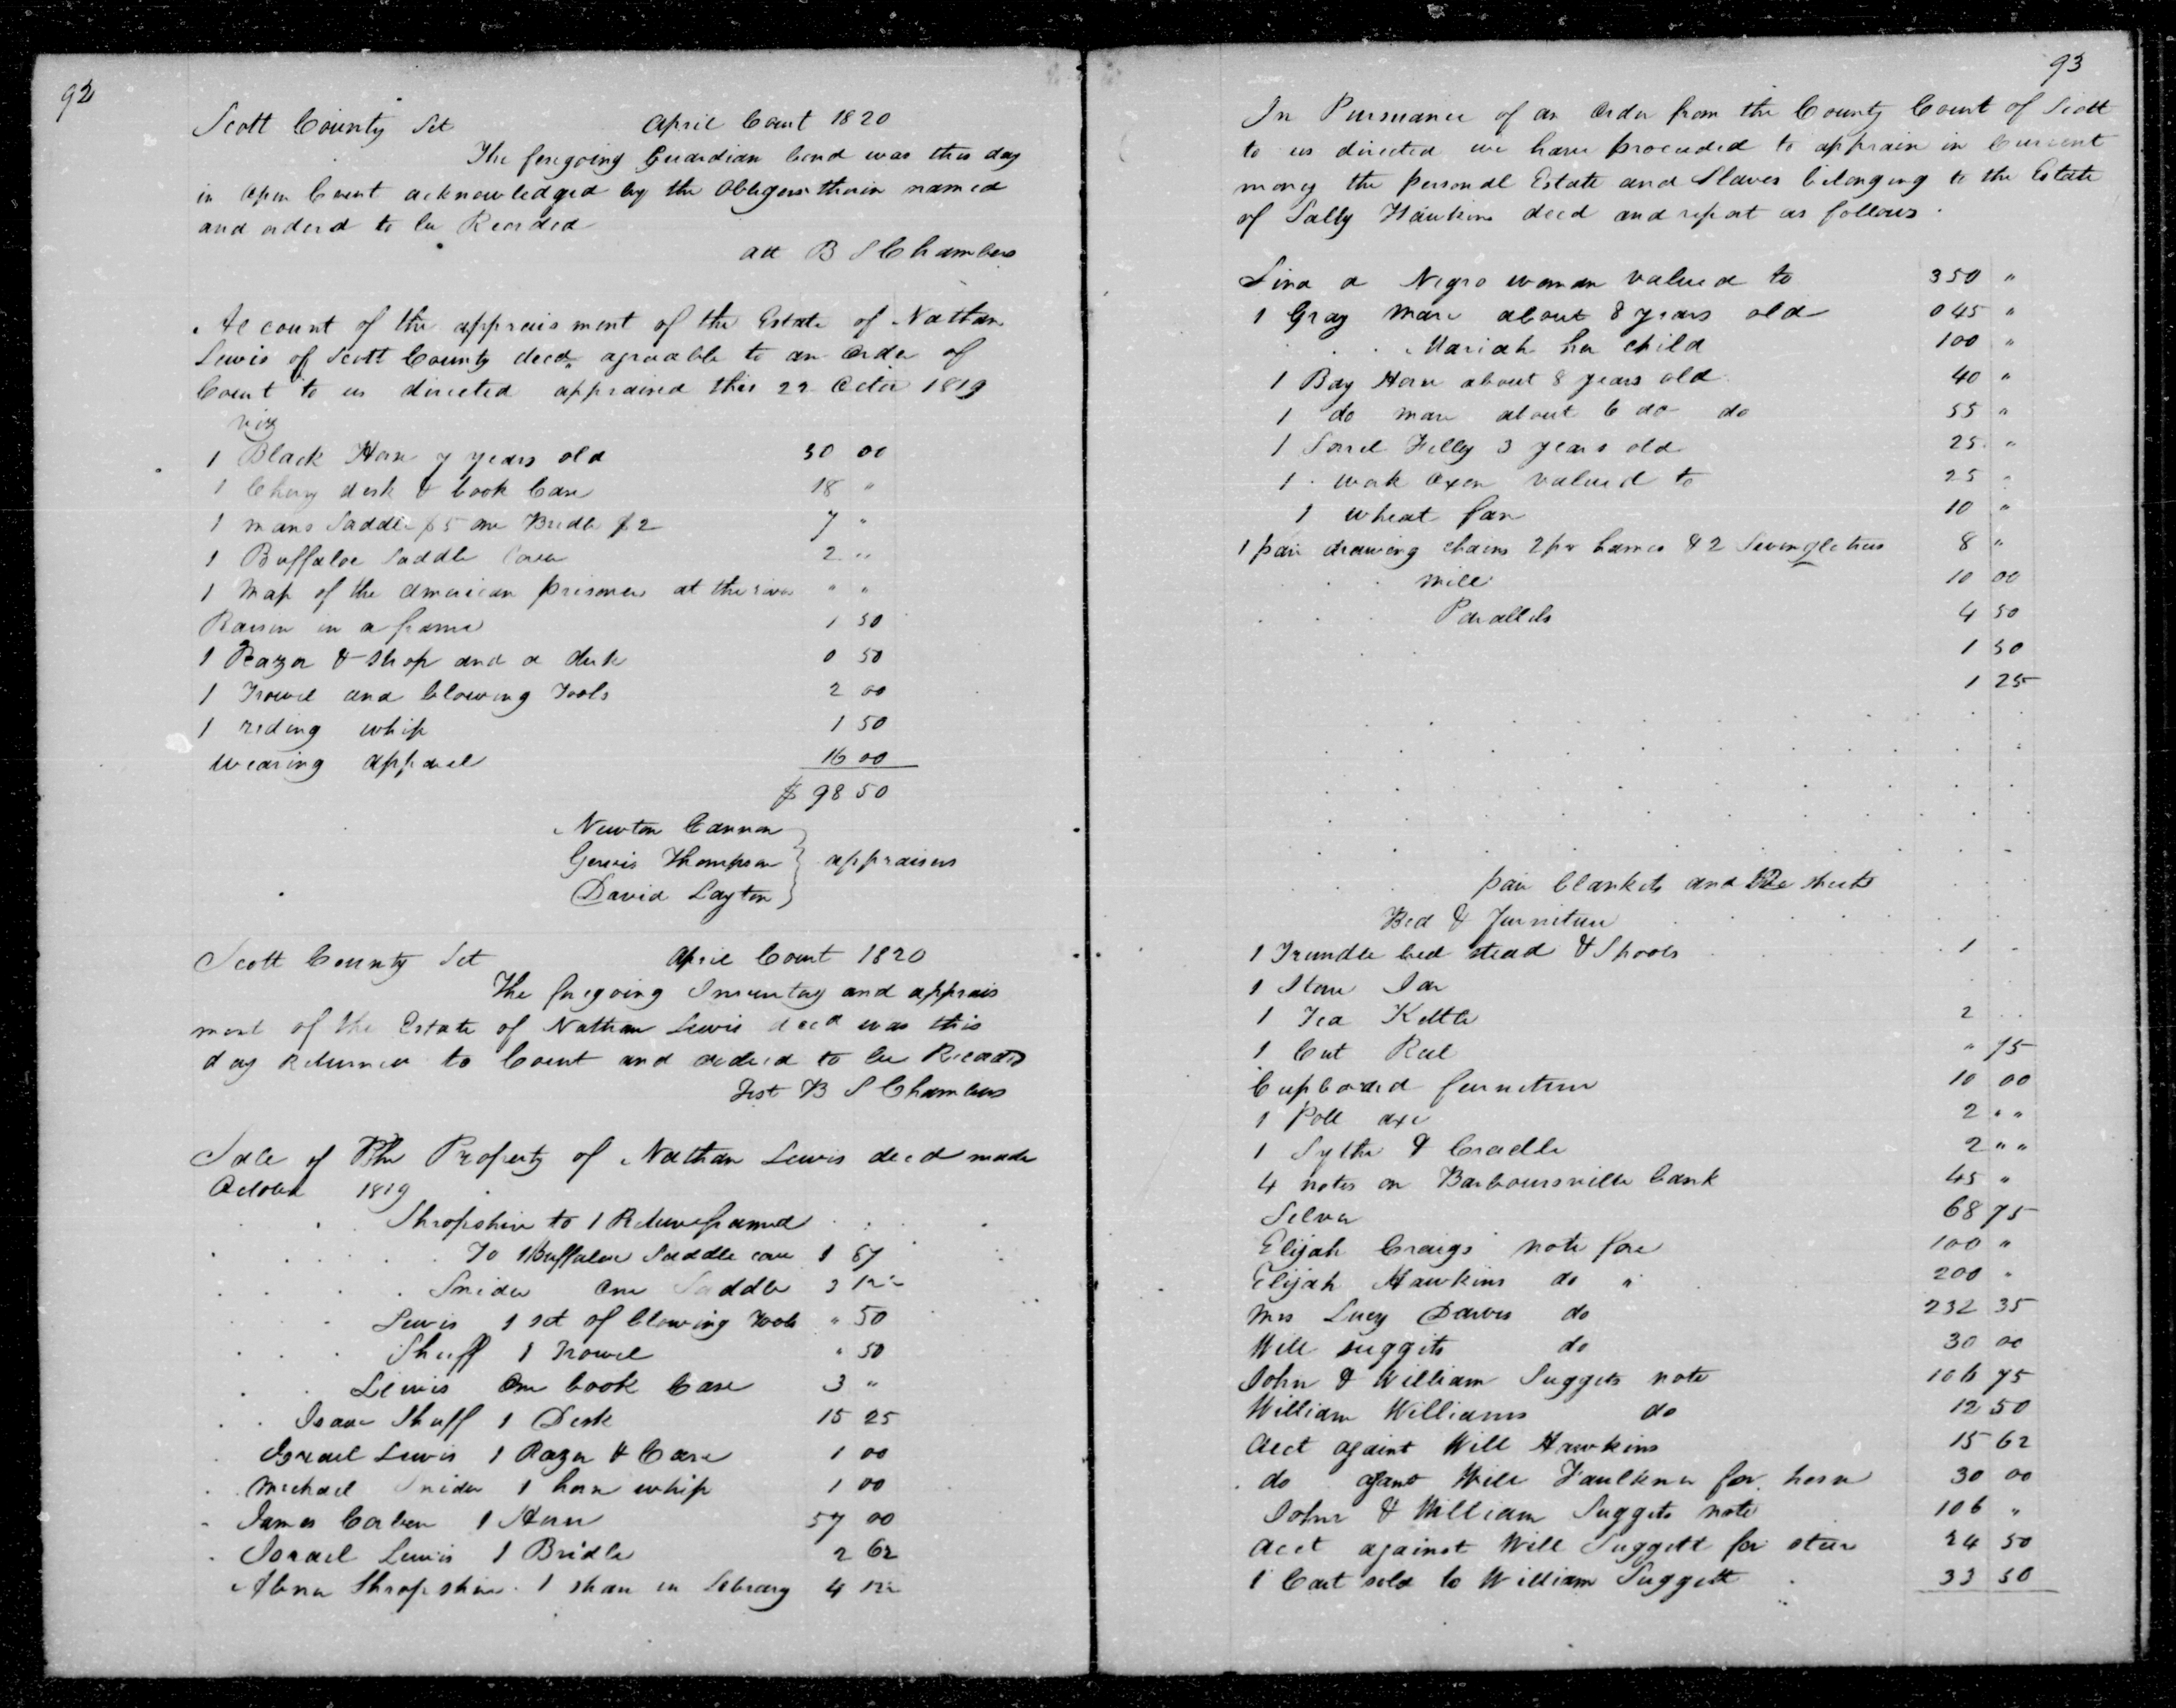 92
Scott County Sct April Court 1820
The foregoing Guardian bond was this day
in open Court acknowledged by the Obligors therein named
and orderd to be Recorded
att B S Chambers
Account of the appraisment of the Estate of Nathan
Lewis of Scott County decd. agreeable to an order of
Court to us directed appraised this 22 Octor 1819
viz
1 Black Horse 7 years old 50 00
1 Cherry desk & book Case 18 "
1 mans Saddle $5 one Bridle $2 7 "
1 Buffaloe Saddle Cover 2 "
1 Map of the american prisoners at the river " "
Raisin in a frame 1 50
1 Razor & Strop and a desk 0 50
1 Trowel and Plowing Tools 2 00
1 riding whip 1 50
wearing apparel 16 00
$ 98 50
Newton Cannon
Gervis Thompson } appraisers
David Layton
Scott County Sct April Court 1820
The foregoing Inventory and apprais
ment of the Estate of Nathan Lewis decd was this
day Returned to Court and ordered to be Recorded
Test B S Chambers
Sale of The Property of Nathan Lewis decd made
October 1819
Shropshire to 1 framed
To 1 Buffaloe Saddle cover 1 67
Snider One Saddle 3 12½
Lewis 1 set of Plowing Tools " 50
Shuff 1 Trowel " 50
Lewis One book Case 3 "
Isaac Shuff 1 Desk 15 25
Israel Lewis 1 Razor & Case 1 00
Michael Snider 1 horse whip 1 00
James Corben 1 Horse 57 00
Israel Lewis 1 Bridle 2 62
Abner Shropshire 1 share in Library 4 12½
93
In Pursuance of an order from the County Court of Scott
to us directed we have proceeded to appraise in Current
money the personal Estate and Slaves belonging to the Estate
of Sally Hawkins decd and report as follows.
Lina a Negro woman valued to 350 "
1 Gray Mare about 8 years old 045 "
Mariah her child 100 "
1 Bay Horse about 8 years old 40 "
1 do mare about 6 do do 55 "
1 Sorrel Filly 3 years old 25 "
1 work oxen valued to 25 "
1 wheat fan 10 "
1 pair drawing chains 2 pr hames & 2 Swingletrees 8 "
mill 10 00
Parallels 4 50
1 50
1 25
pair blankets and sheets
Bed & furniture
1 Trundle bed stead & Spools 1 "
1 Stone Jar
1 Tea Kettle 2
1 Cut Reel " 75
Cupboard furniture 10 00
1 Poll axe 2 " "
1 Sythe & Cradle 2 " "
4 notes on Barboursville bank 45 "
Silver 68 75
Elijah Craigs note fore 100 "
Elijah Hawkins do " 200 "
Mrs Lucy Davis do 232 35
Will suggits do 30 00
John & William Suggets note 106 75
William Williams do 12 50
Acct against Will Hawkins 15 62
do against Will Faulkner for horse 30 00
John & William Suggets note 106 "
acct against Will Suggett for steer 24 50
1 Cart sold to William Suggett 33 50